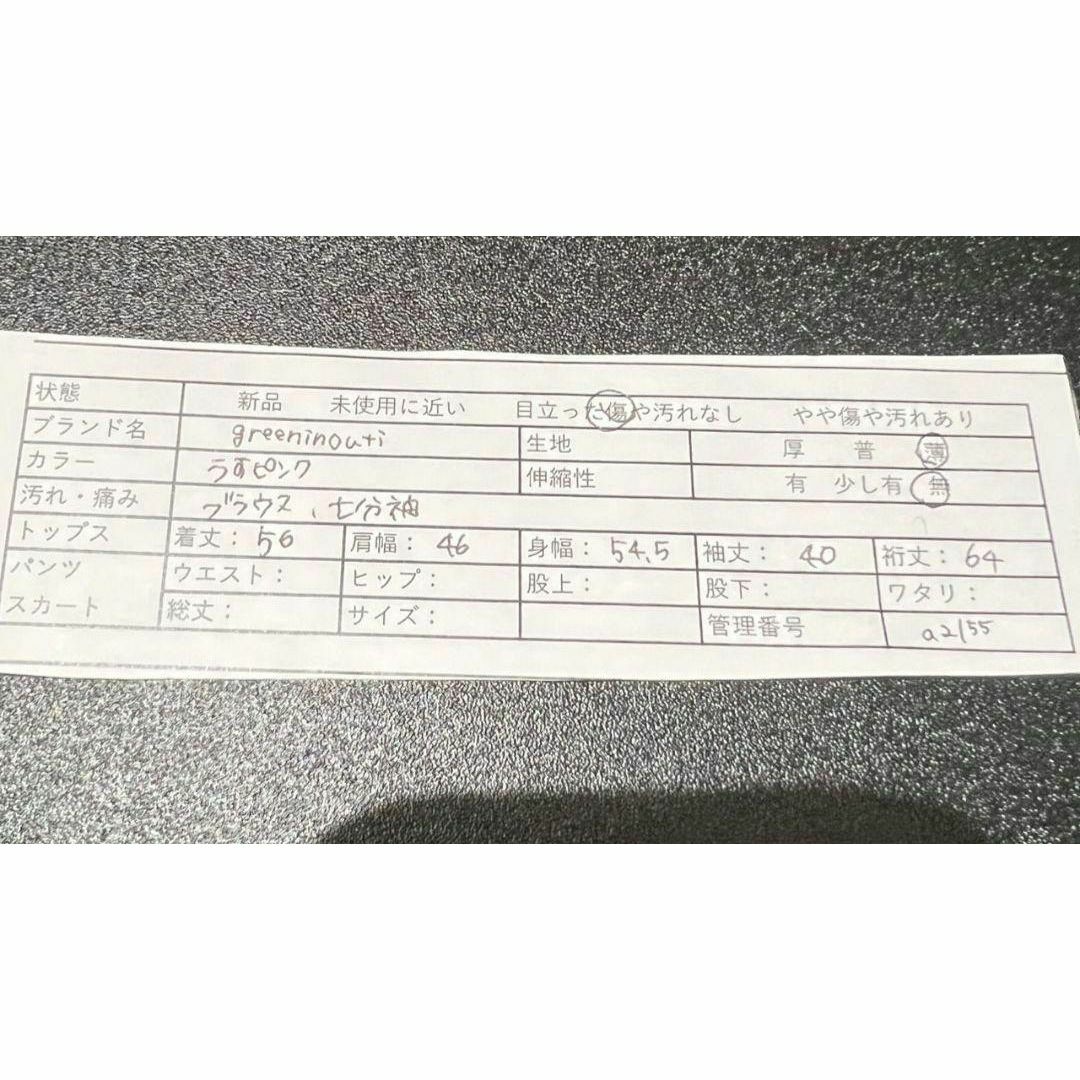 状態 新品 未使用に近い 目立った傷や汚れなし やや傷や汚れあり
ブランド名 greeninouti 生地 厚 普 薄
カラー うすピンク 伸縮性 有 少し有 無
汚れ・痛み ブラウス、七分袖
トップス 着丈：56 肩幅：46 身幅：54.5 袖丈：40 裄丈：64
パンツ ウエスト： ヒップ： 股上： 股下： ワタリ：
スカート 総丈： サイズ： 管理番号 a2155